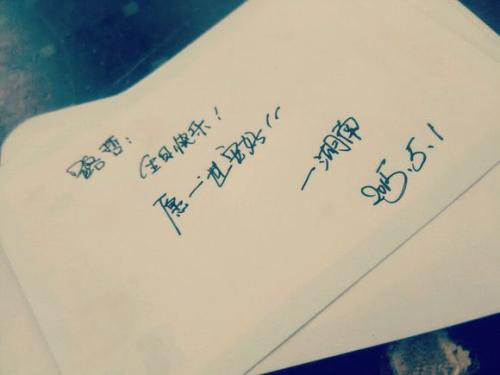 露哲:
生日快乐!
愿一世安好
一湖南
2015.5.1